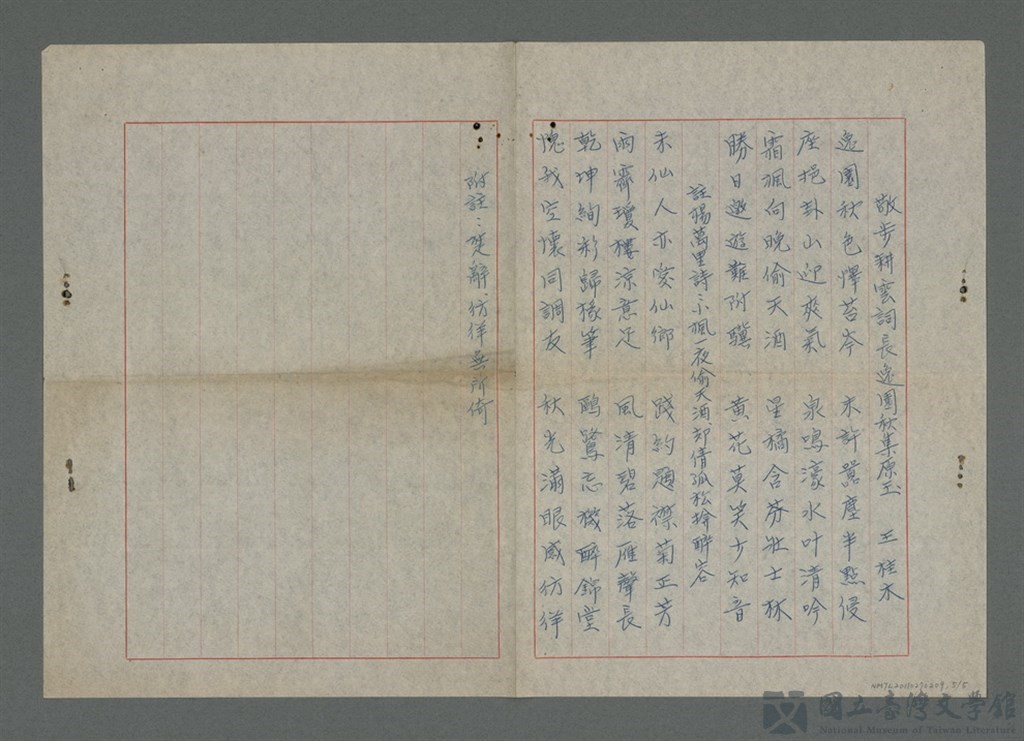 敬步耕雲詞長逸園秋集原玉 王桂木
逸園秋色懌苔岑 未許囂塵半點侵
座挹卦山迎爽氣 泉鳴濠水叶清吟
霜楓向晚偷天酒 星橘含芬壯士
勝日遨遊難附驥 黃花莫笑少知音
註楊萬里詩:小楓一夜偷天酒、却倩孤松掩醉容
未仙人亦愛仙鄉 踐約題襟菊正芳
雨霽瓊樓涼意足 風清碧落雁聲長
乾坤絢彩歸椽筆 鷗鷺忘機醉錦堂
愧我空懷同調友 秋光滿眼感彷徉
附註:楚辭、彷徉無所倚
NMTL20110270209.5/5
國立臺灣文學館
National Museum of Taiwan Literature